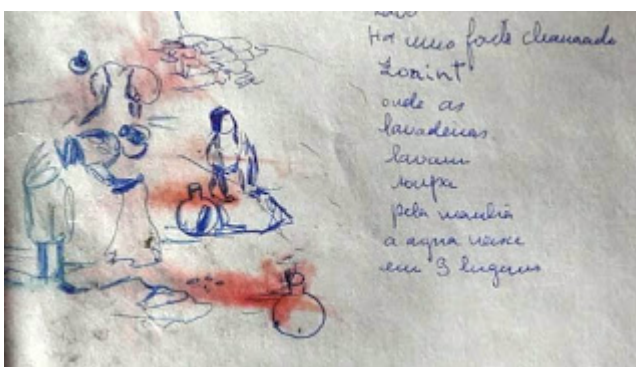 Há uma fonte chamada
Zoaint
onde as
lavadeiras
lavam
roupa
pela manhã
a agua nasce
em 3 lugares